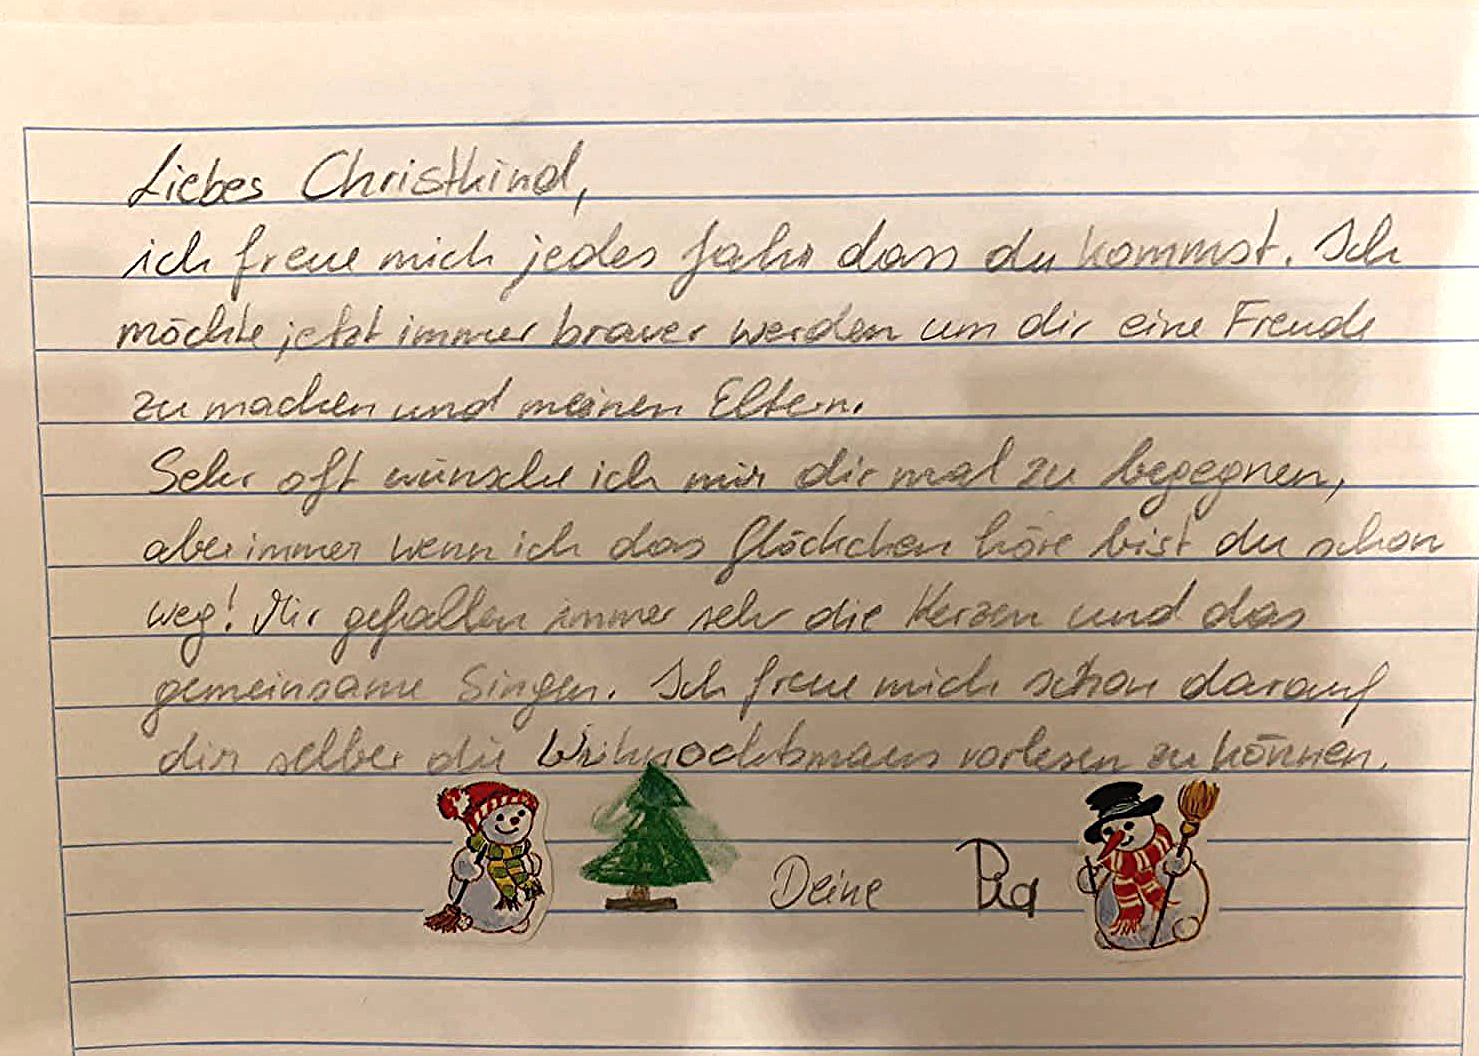 Liebes Christkind,
ich freue mich jedes Jahr dass du kommst. Ich
möchte jetzt immer braver werden um dir eine Freude
zu machen und meinen Eltern.
Sehr oft wünsche ich mir dir mal zu begegnen,
aber immer wenn ich das Glöckchen höre bist du schon
weg! Mir gefallen immer sehr die Kerzen und das
gemeinsame Singen. Ich freue mich schon darauf
dir selber die Weihnachtsmaus vorlesen zu können.
Deine Pia